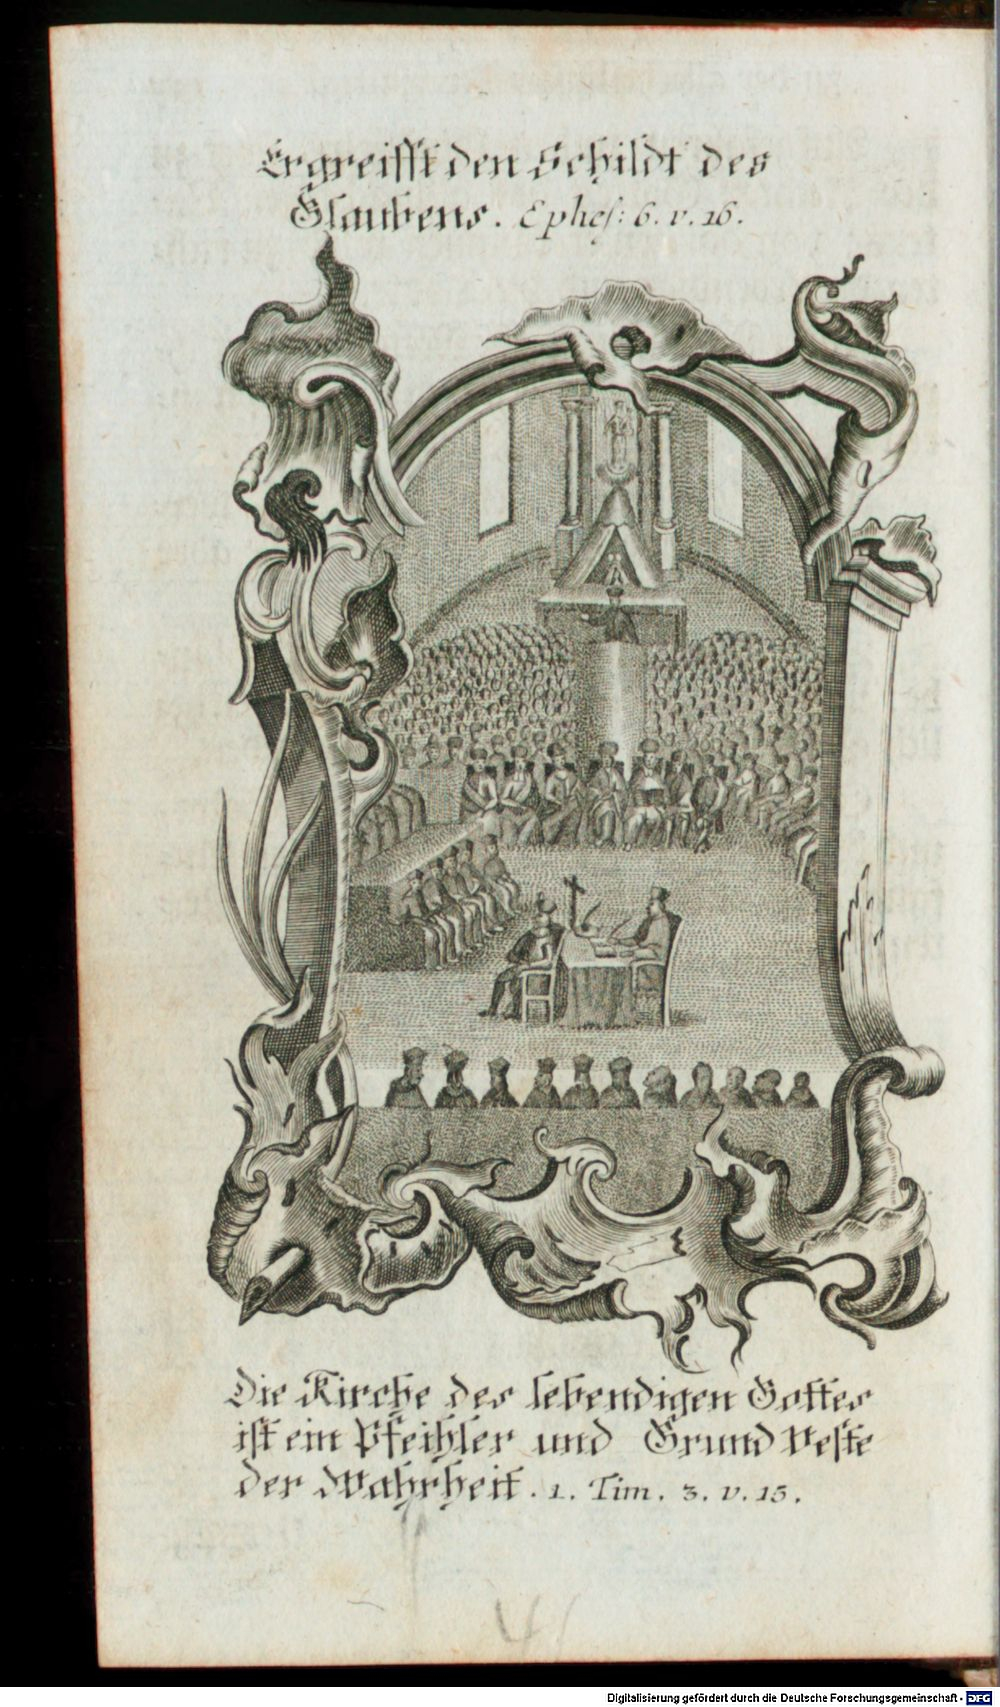 Ergreifft den Schildt des
Glaubens. Ephes: 6. v. 16.
Die Kirche des lebendigen Gottes
ist ein Pfeihler und Grund Veste
der Wahrheit. 1. Tim. 3. v. 15.
41
Digitalisierung gefördert durch die Deutsche Forschungsgemeinschaft - DFG